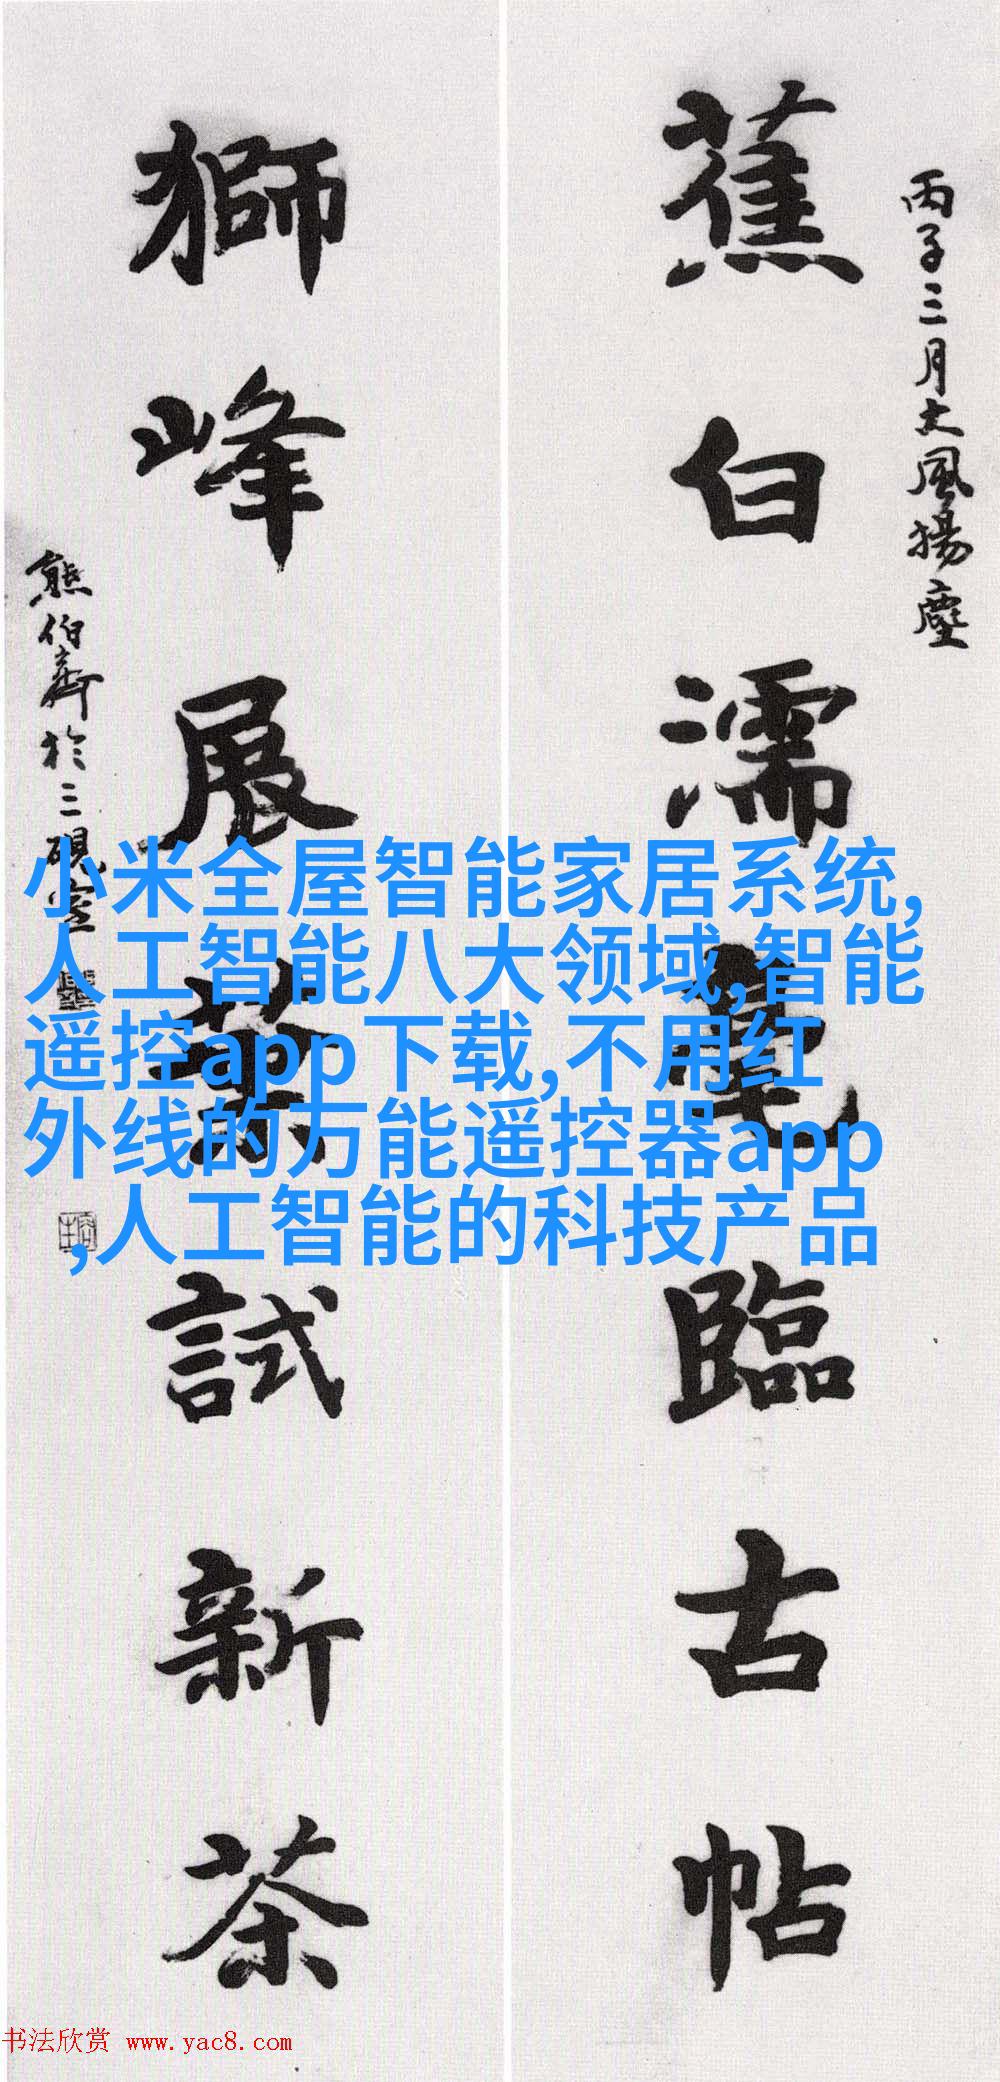 丙子三月大風揚塵
蕉白濡毫臨古帖
獅峰展葉試新茶
熊伯齊於三硯室
小米全屋智能家居系统,
人工智能八大领域,智能
遥控app下载,不用红
外线的万能遥控器app
,人工智能的科技产品
书法欣赏 www.yac8.com